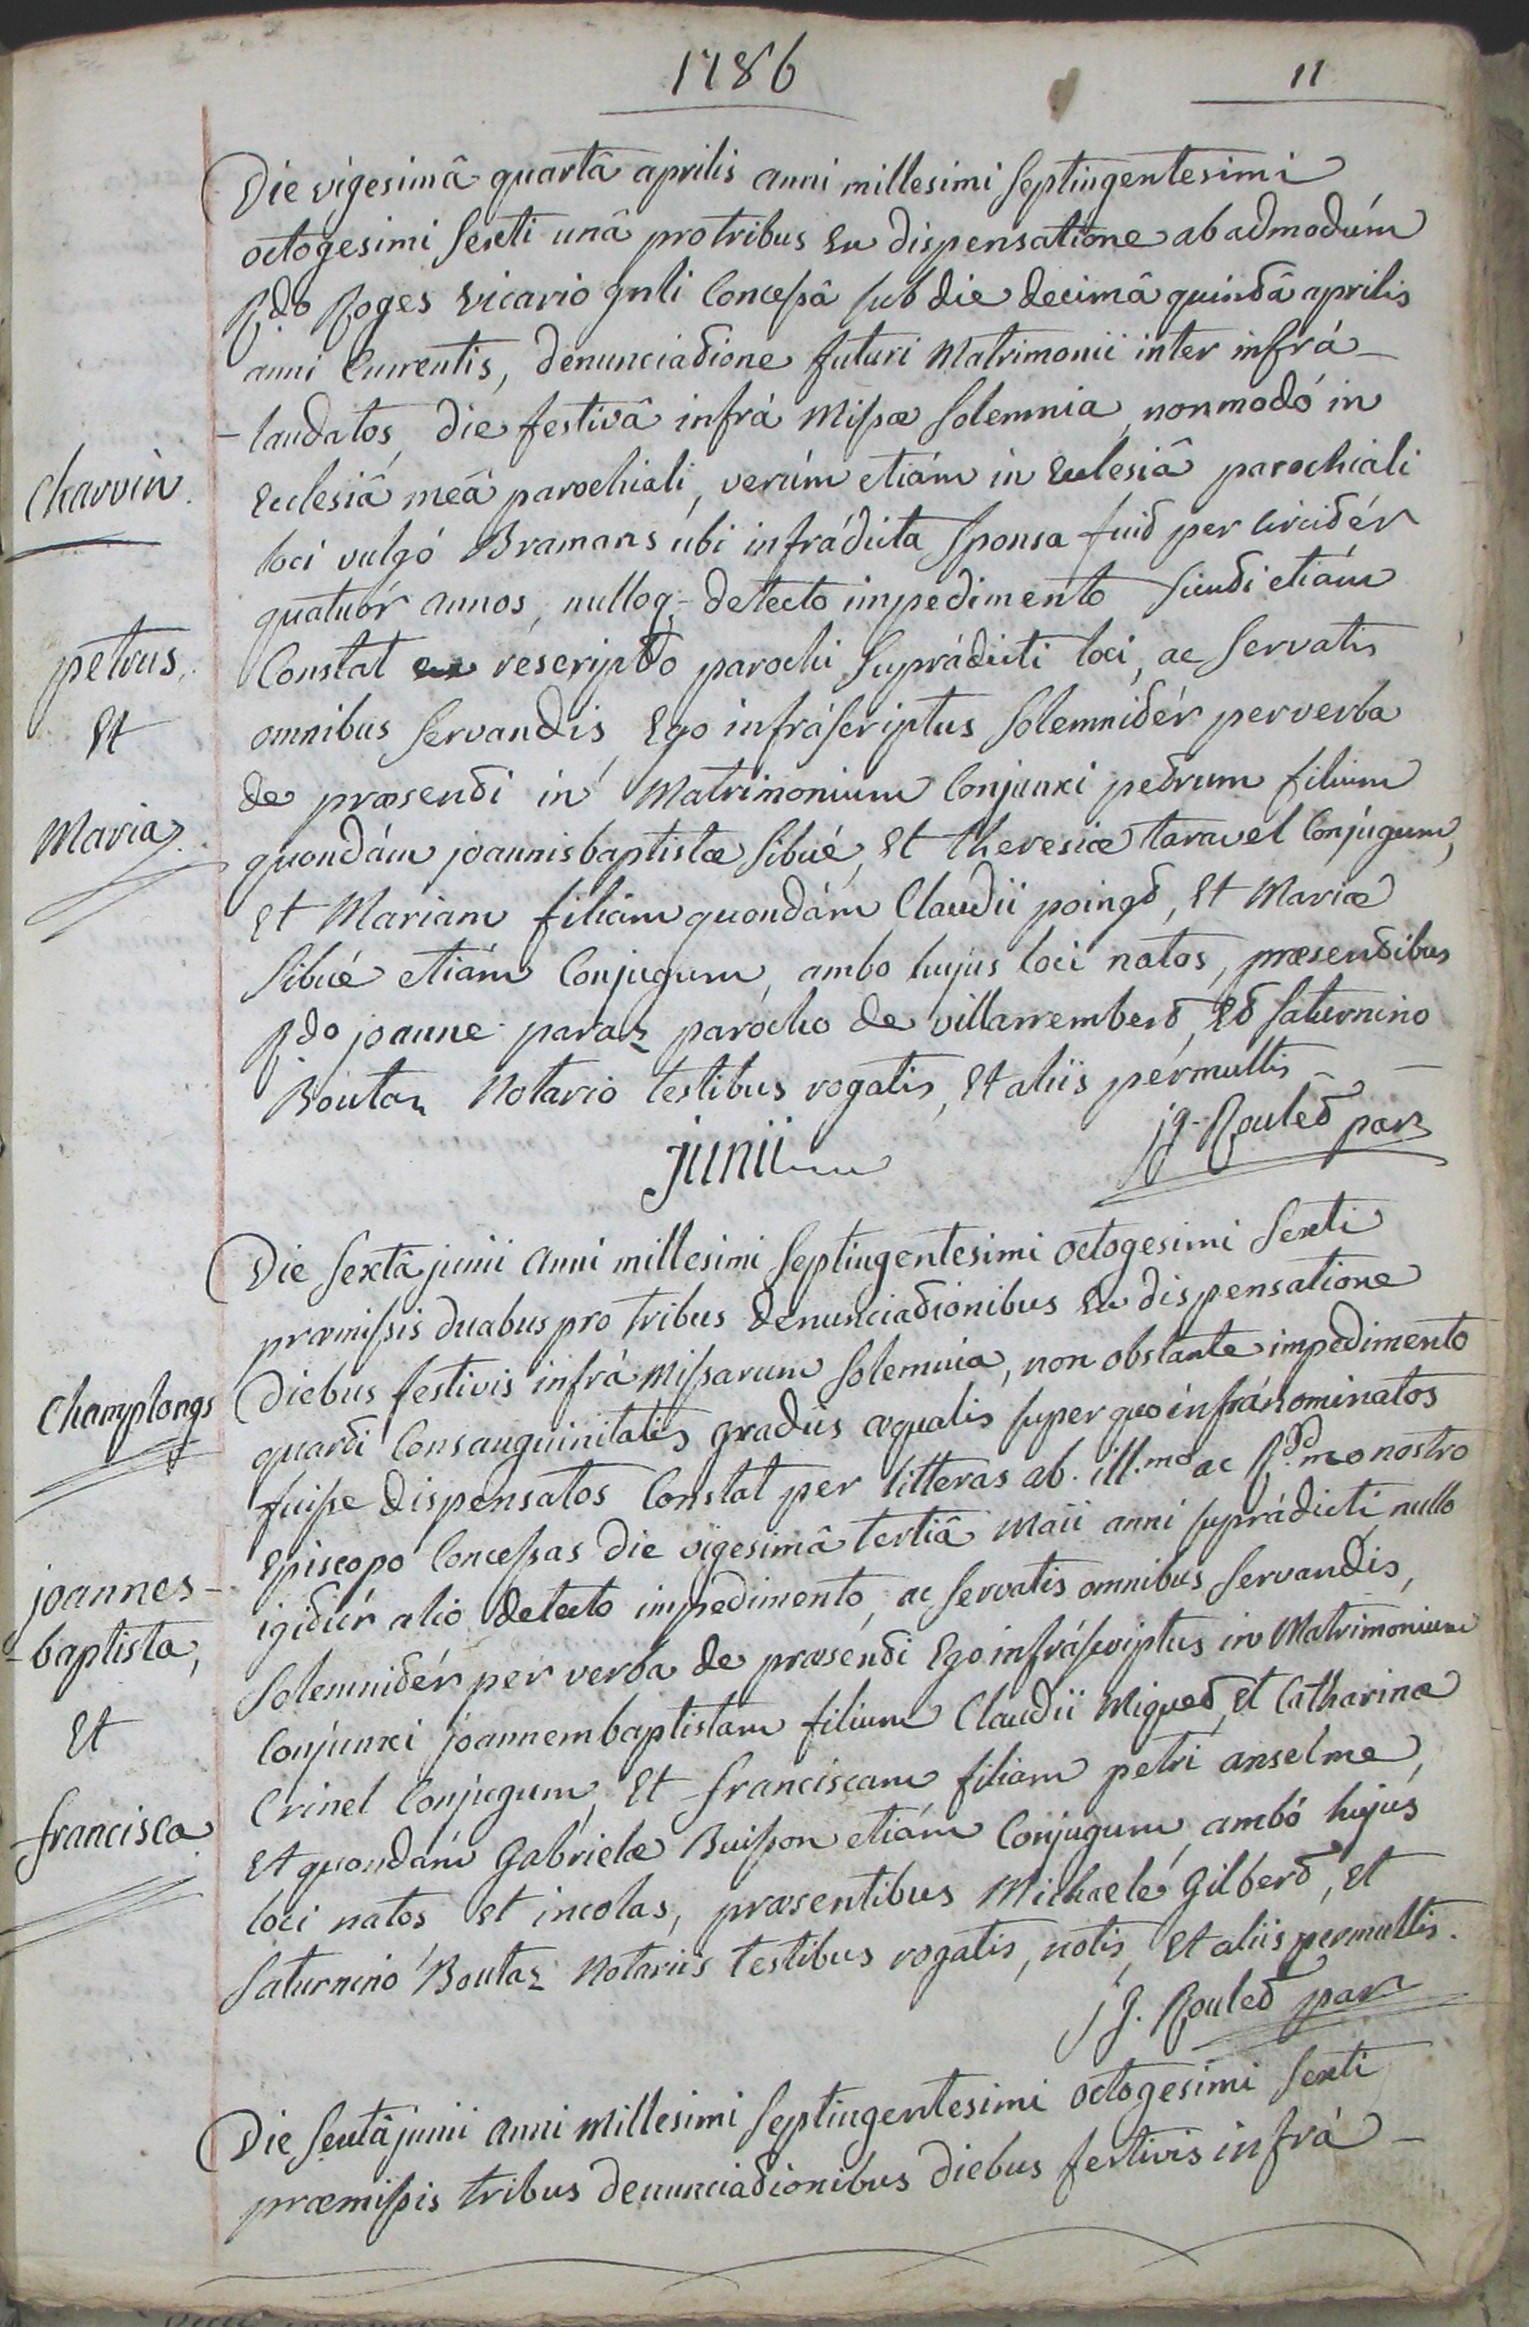 1786
11
Die vigesimâ quartâ aprilis anni millesimi septingentesimi
octogesimi sexti unâ pro tribus ex dispensatione ab admodúm
Rdo Roges vicario gnli concessâ sub die decimâ quintâ aprilis
anni currentis, denunciatione futuri Matrimonii inter infrá-
-laudatos, die festivâ infrá Missæ solemnia, non modó in
Ecclesiâ meâ parochiali, verúm etiám in Ecclesiâ parochiali
Charvin.
loci vulgó Bramans ubi infrádicta sponsa fuit per circitér
quatuór annos, nulloq; detecto impedimento sicuti etiám
petrus,
Constat ex rescripto parochi suprádicti loci, ac servatis
Et
omnibus servandis, Ego infráscriptus solemnitér per verba
de præsenti in Matrimonium conjunxi petrum filium
Maria.
quondám joannisbaptistæ Sibué, Et theresiæ taravel conjugum,
Et Mariam filiam quondám Claudii poingt, Et Mariæ
Sibué etiám conjugum, ambo hujus loci natos, præsentibus
Rdo joanne paraz parócho de villarrembert, Et saturnino
Boutaz Notario testibus rogatis, Et aliis permultis -
jg. Roulet par
junii
Die sextâ junii anni millesimi septingentesimi octogesimi sexti
præmissis duabus pro tribus denunciationibus ex dispensatione
diebus festivis infrá Missarum solemnia, non obstante impedimento
Champlongs
quarti consanguinitatis gradús æqualis super quo infránominatos
fuisse dispensatos constat per litteras ab ill.mo ac R.do mo nostro
Episcopo concessas die vigesimâ tertiâ Maii anni suprádicti, nullo
joannes-
igitúr alio detecto impedimento, ac servatis omnibus servandis,
-baptista,
solemnitér per verba de præsenti Ego infráscriptus in Matrimonium
Et
conjunxi joannembaptistam filium Claudii Miguet, Et Catharinæ
Crinel conjugum, Et franciscam filiam petri anselme,
francisca
Et quondám Gabrielæ Buisson etiám conjugum, ambó hujus
loci natos et incolas, præsentibus Michaele Gilbert, Et
saturnino Boutaz Notariis testibus rogatis, notis, Et aliis permultis.
j g. Roulet par
Die sextâ junii anni millesimi septingentesimi octogesimi sexti
præmissis tribus denunciationibus diebus festivis infrá -